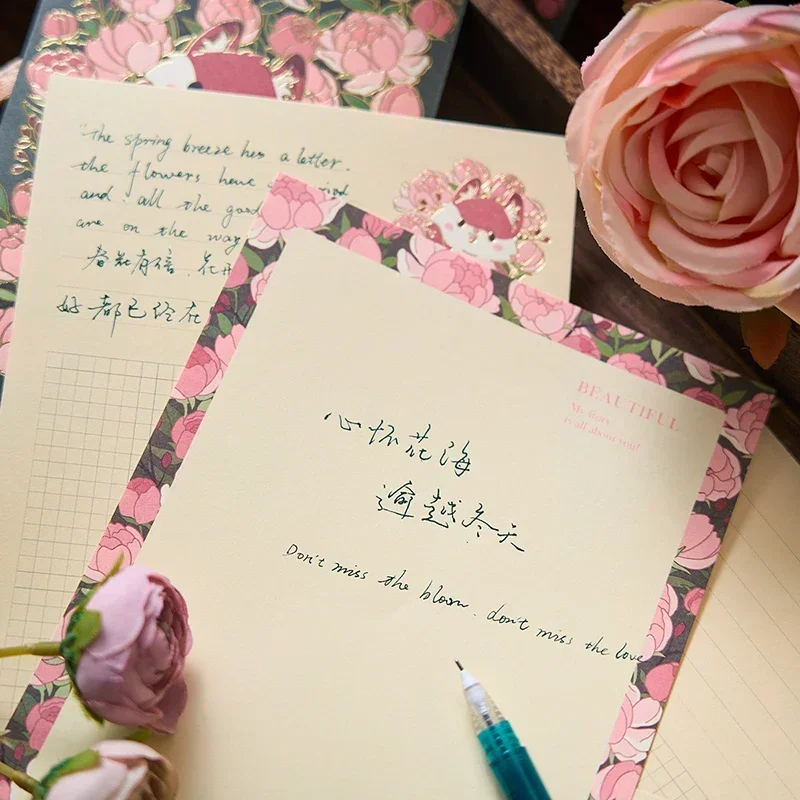 "the spring breeze has a letter.
the flowers have
and all the good
are on the way
春花有信,花开
好都已经在
BEAUTIFUL
My diary
is all about you!
心怀花海
逾越冬天
Don't miss the bloom. don't miss the love